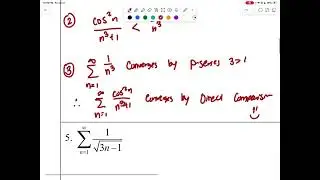 ② cos²n / n³+1 < n³
③ ∞ Σ n=1 1/n³ Converges by p-series 3>1
∴ ∞ Σ n=1 cos²n / n³+1 Converges by Direct Comparison
5. ∞ Σ n=1 1 / √3n−1